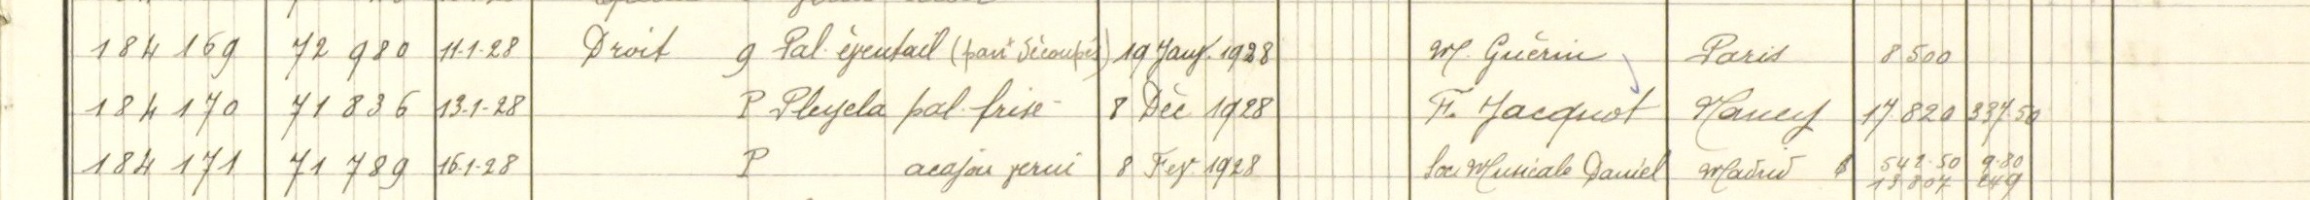 184 169 72 980 11-1-28 Droit 9 Pal. éventail (pann découpés) 19 Janv. 1928 M. Guérin Paris 8 500
184 170 71 836 13-1-28 P Pleyela pal. frisé 8 Déc 1928 F. Jacquot Nancy 17.820 337.50
184 171 71 789 16-1-28 P acajou verni 8 Fev. 1928 Soc. Musicale Daniel Madrid $ 542.50 9.80
13 807 249